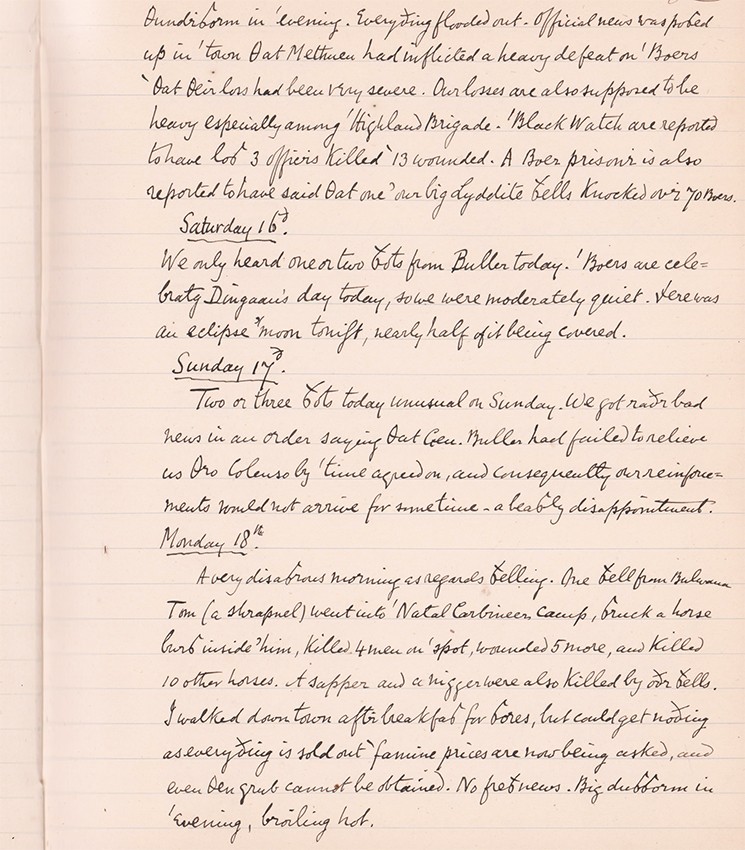 ðundrбorm in 'evening. Everyðing flooded out. Official news was poбed
up in 'town ðat Methuen had inflicted a heavy defeat on 'Boers
`ðat ðeir loss had been very severe. Our losses are also supposed to be
heavy especially among 'Highland Brigade. 'Black Watch are reported
to have loб 3 officers killed `13 wounded. A Boer prison'r is also
reported to have said ðat one ' our big Lyddite бells knocked ov'r 70 Boers.
Saturday 16ð.
We only heard one or two бots from Buller today. 'Boers are cele=
bratg Dingaan's day today, so we were moderately quiet. ðere was
an eclipse ' moon toniбt, nearly half of it being covered.
Sunday 17ð.
Two or three бots today unusual on Sunday. We got raðr bad
news in an order saying ðat Gen. Buller had failed to relieve
us ðro Colenso by 'time agreed on, and consequently our reinforce=
ments would not arrive for sometime - a beaбly disappointment.
Monday 18th.
A very disaбrous morning as regards бelling. One бell from Bulwana
Tom (a shrapnel) went into 'Natal Carbineers camp, бruck a horse
burб inside 'him, killed 4 men on 'spot, wounded 5 more, and killed
10 other horses. A sapper and a nigger were also killed by oðr бells.
I walked down town aft'r breakfaб for бores, but could get noðing
as everyðing is sold out `famine prices are now being asked, and
even ðen grub cannot be obtained. No freб news. Big duббorm in
'evening, broiling hot.